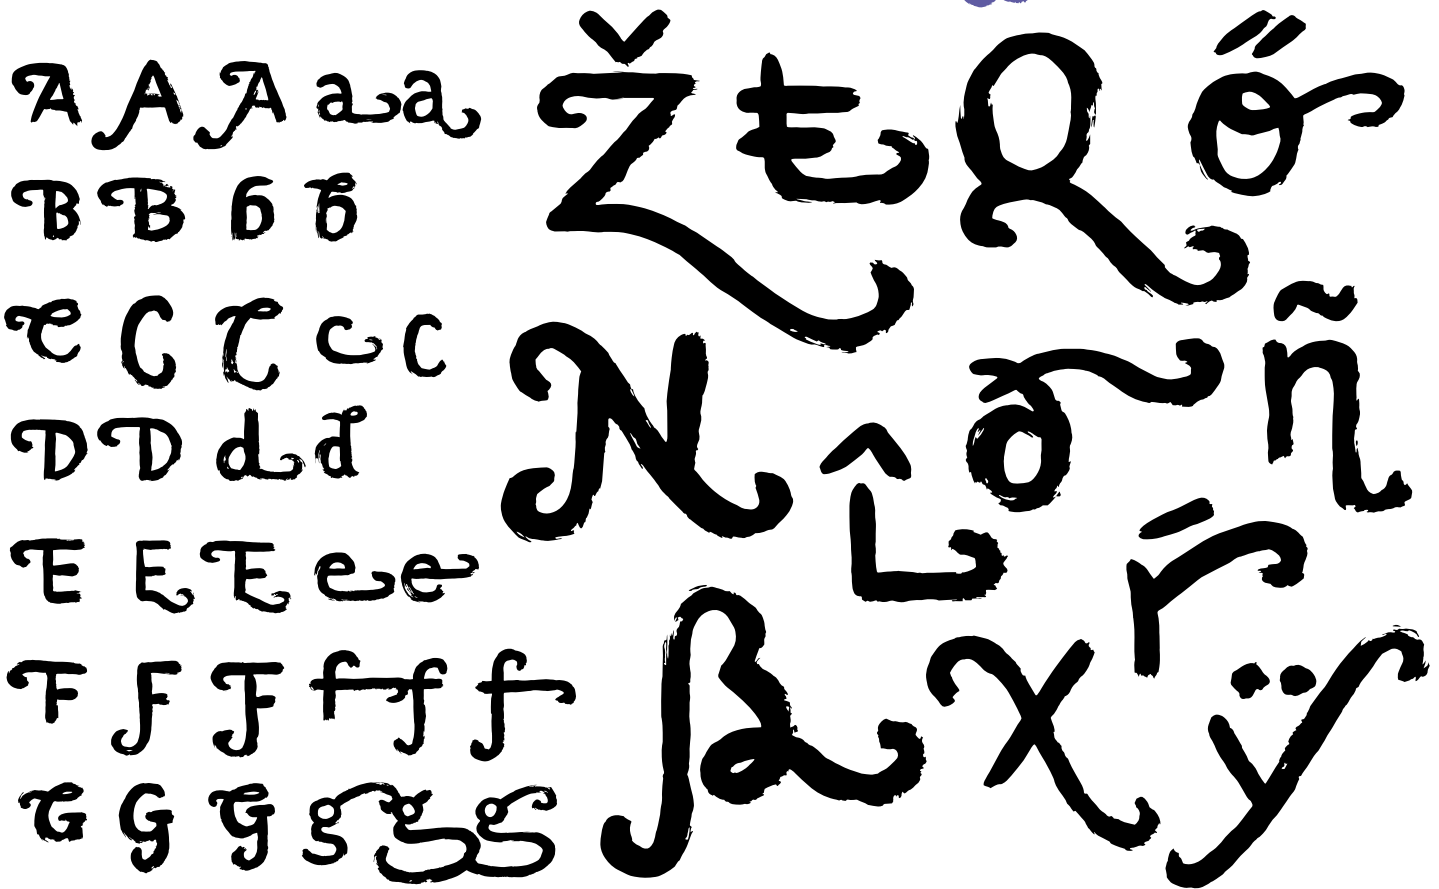 A A A a a
B B b b
C C C c c
D D d d
E E E e e
F F F f f f
G G G g g g
Ž ŧ Q ő
N ð ñ
Ĺ̂ ŕ
ß X ÿ